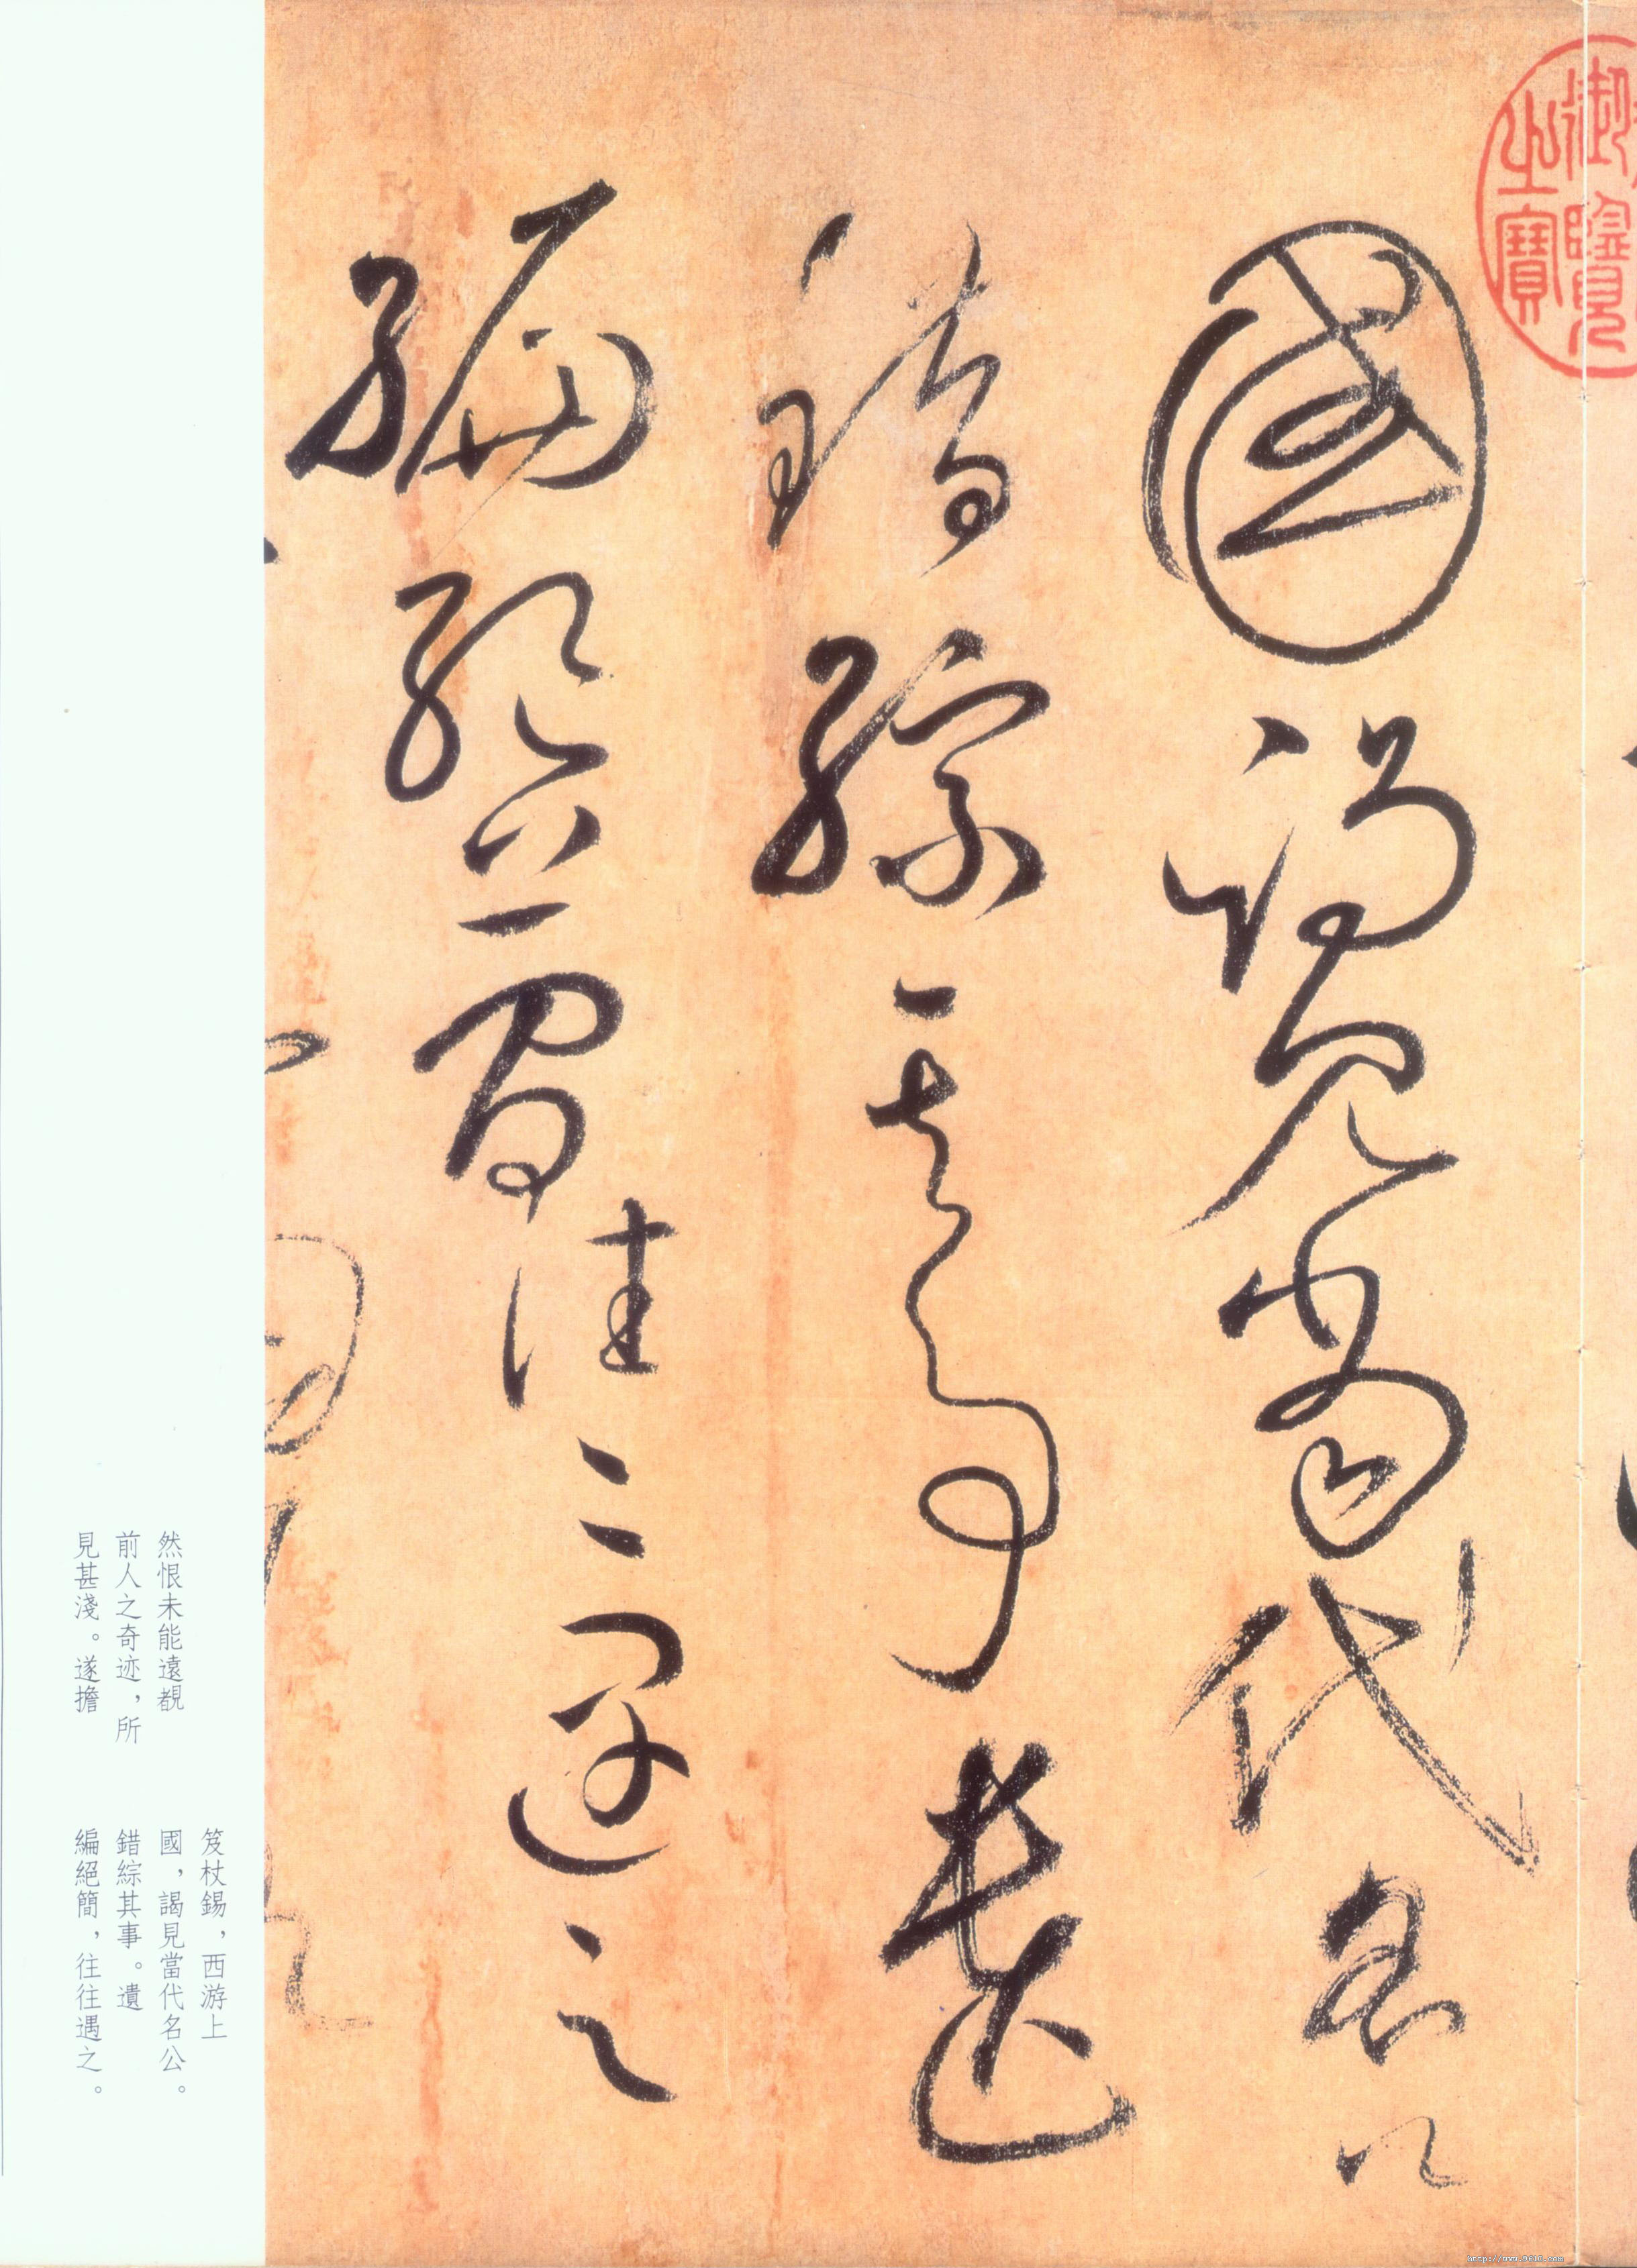 國謁見當代名公
錯綜其事遺
編絕簡往往遇之
御覽
之寶
然恨未能遠覩
前人之奇迹，所
見甚淺。遂擔
笈杖錫，西游上
國，謁見當代名公。
錯綜其事。遺
編絕簡，往往遇之。
http://www.9610.com